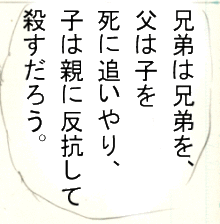 兄弟は兄弟を、
父は子を
死に追いやり、
子は親に反抗して
殺すだろう。